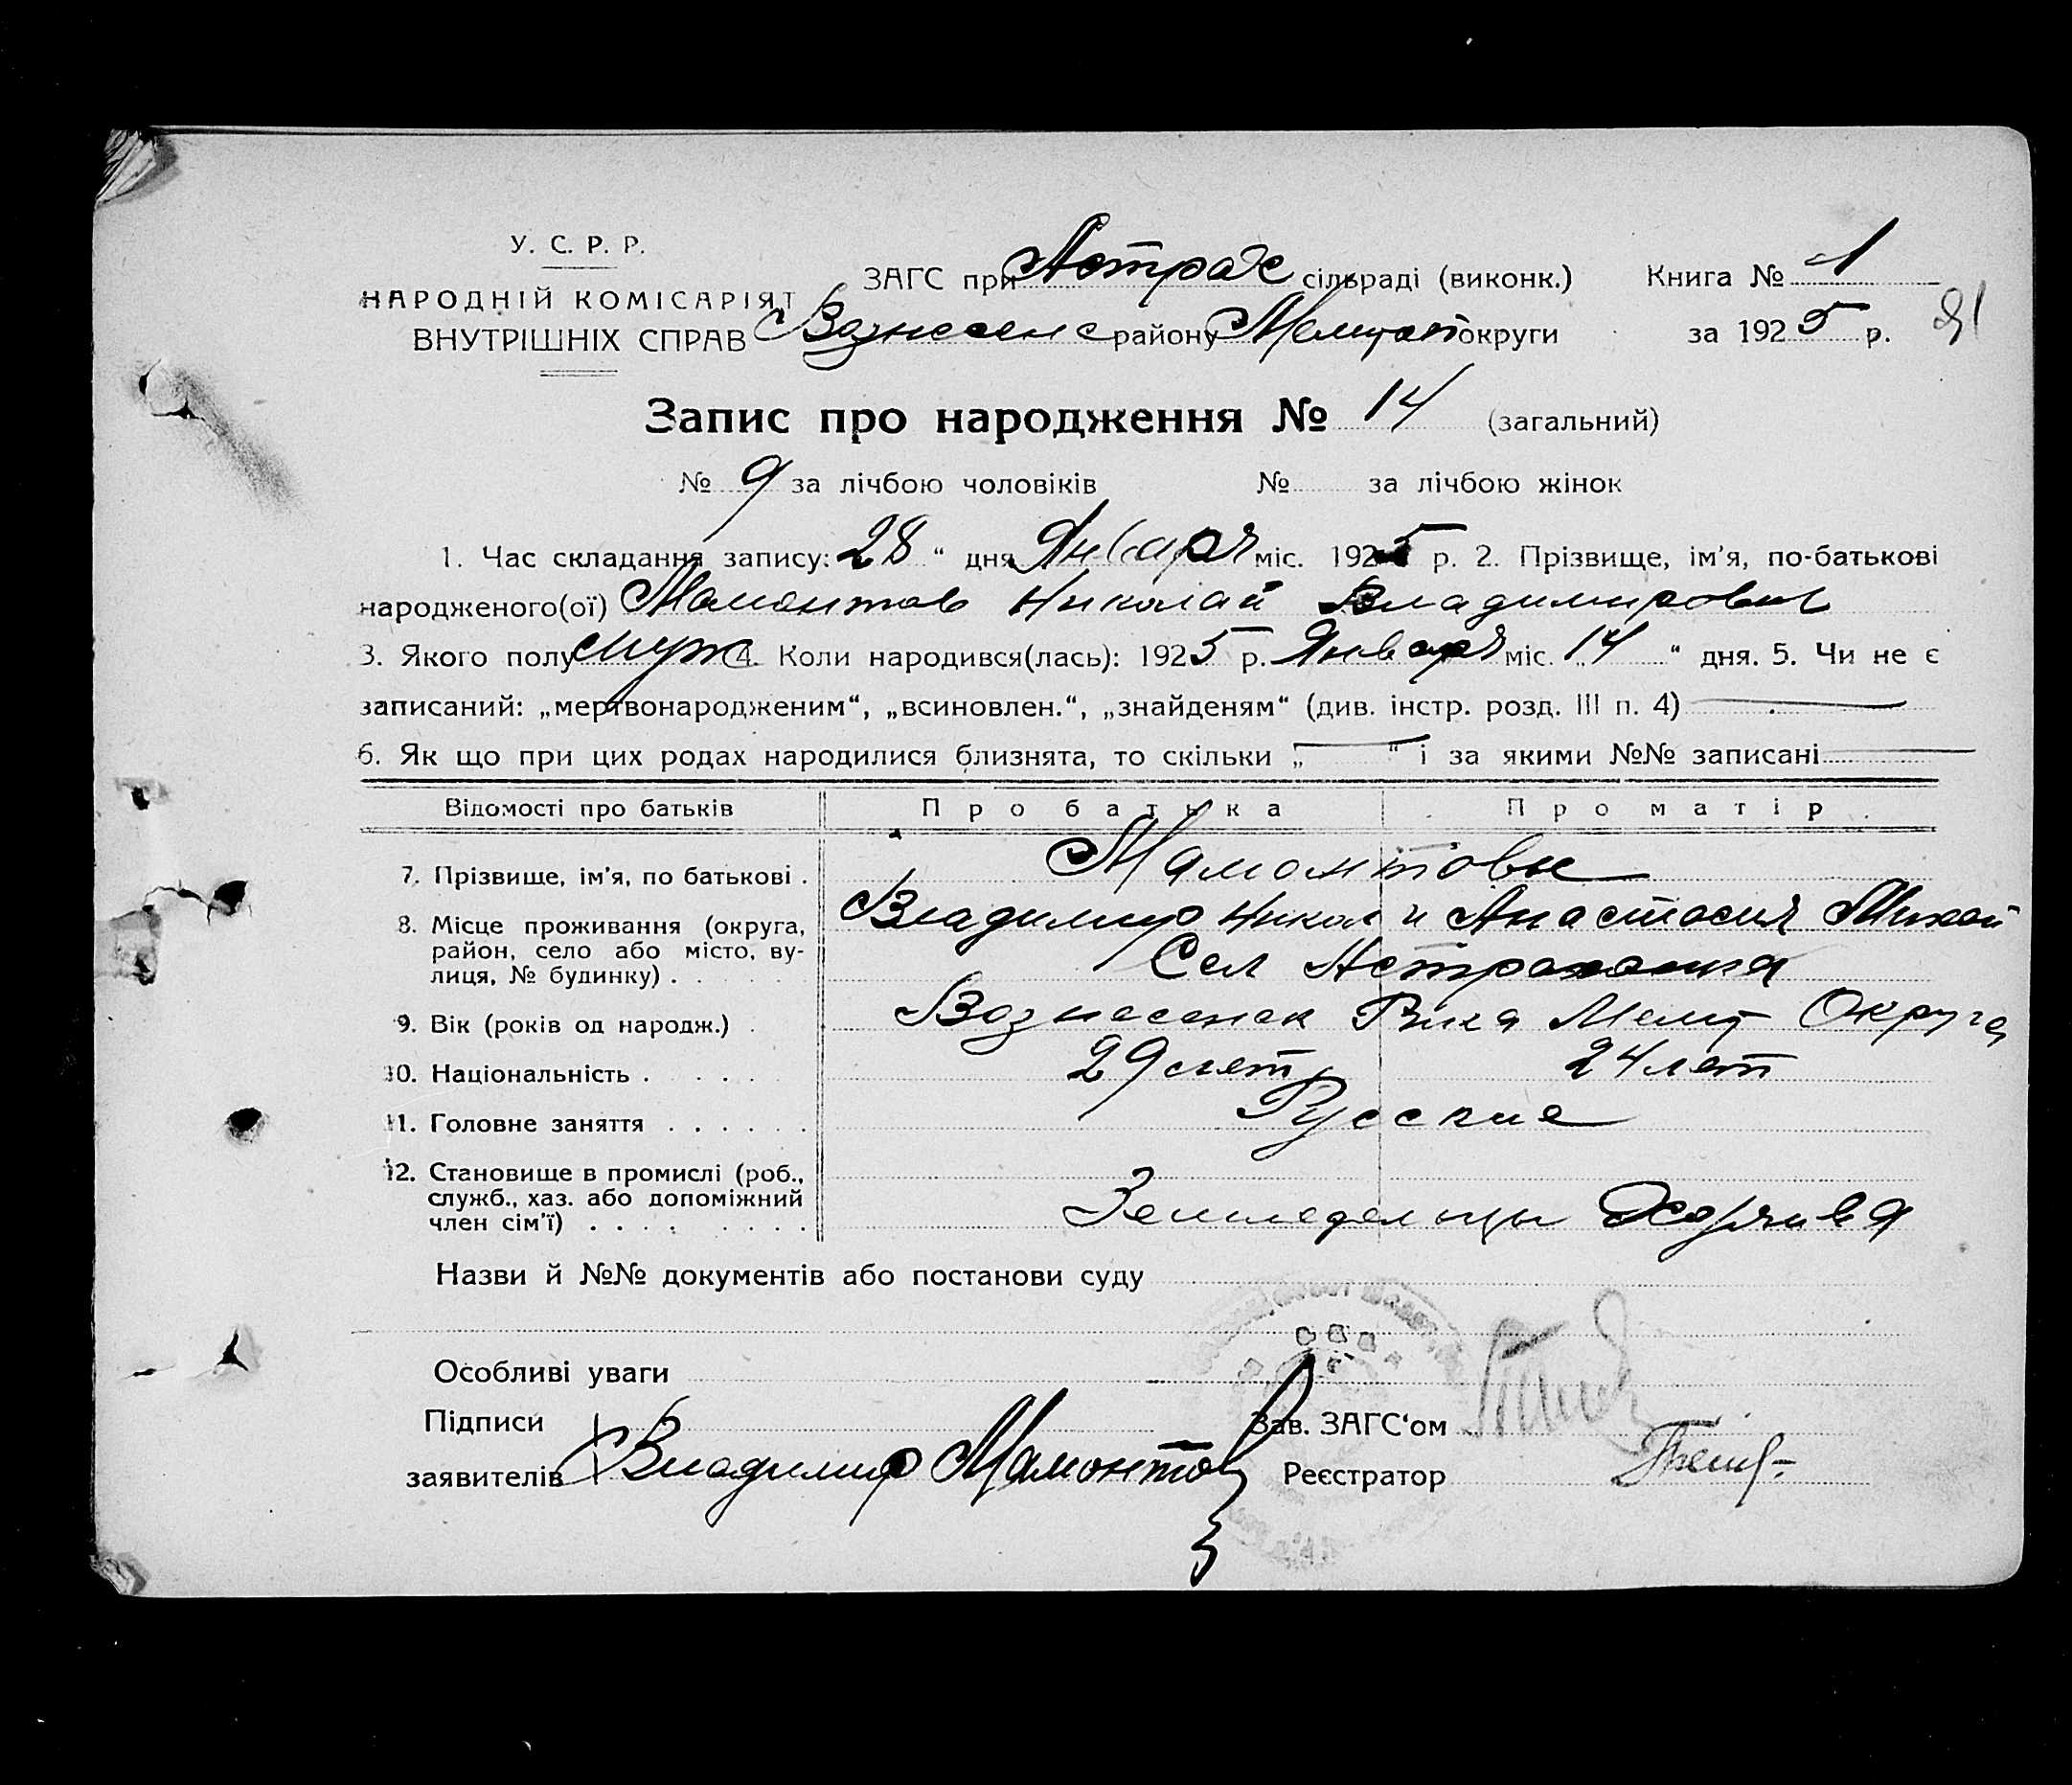 У. С. Р. Р.
НАРОДНІЙ КОМІСАРІЯТ
ВНУТРІШНІХ СПРАВ
ЗАГС при Астрах сільраді (виконк.) Книга № 1
Вознесенс району Мелитоп округи за 1925 р. 91
Запис про народження № 14 (загальний)
№ 9 за лічбою чоловіків № за лічбою жінок
1. Час складання запису: 28 “ дня Января міс. 1925 р. 2. Прізвище, ім’я, по-батькові
народженого(ої) Мамонтов Николай Владимирович
3. Якого полу муж 4. Коли народився(лась): 1925 р. Января міс. „14“ дня. 5. Чи не є
записаний: „мертвонародженим“, „всиновлен.“, „знайденям“ (див. інстр. розд. III п. 4)
6. Як що при цих родах народилися близнята, то скільки „ “ і за якими №№ записані
Відомості про батьків Про батька Про матір
7. Прізвище, ім’я, по батькові . Мамонтовы
8. Місце проживання (округа, Владимир Никол и Анастасия Михай
район, село або місто, ву- Сел Астраханка
лиця, № будинку) .
9. Вік (років од народж.) . Вознесенск Рика Мелит Округа
10. Національність . 29 лет 24 лет
11. Головне заняття Русские
12. Становище в промислі (роб.,
служб., хаз. або допоміжний
член сім’ї) Земледельцы
Назви й №№ документів або постанови суду
Особливі уваги
Підписи Зав. ЗАГС‘ом
заявителів Владимир Мамонтов Реєстратор